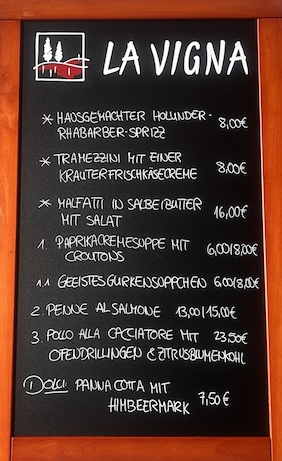 LA VIGNA
* HAUSGEMACHTER HOLUNDER-
RHABARBER-SPRIZZ 8,00€
* TRAMEZZINI MIT EINER
KRÄUTERFRISCHKÄSECREME 8,00€
* MALFATTI IN SALBEIBUTTER
MIT SALAT 16,00€
1. PAPRIKACREMESUPPE MIT
CROUTONS 6,00/8,00€
1.1 GEEISTES GURKENSÜPPCHEN 6,00/8,00€
2. PENNE AL SALMONE 13,00/15,00€
3. POLLO ALLA CACCIATORE MIT 23,50€
OFENDRILLINGEN & ZITRUSBLUMENKOHL
DOLCI: PANNA COTTA MIT
HIMBEERMARK 7,50€